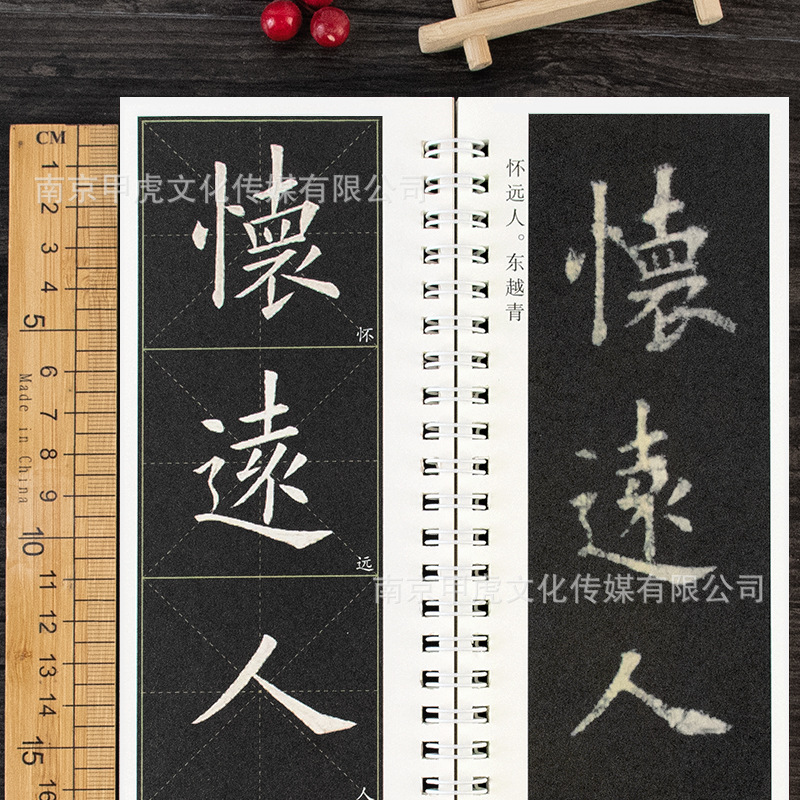 CM
1
2
3
4
5
6
7
8
9
10
11
12
13
14
15
16
Made in China
懷
怀
遠
远
人
人
怀远人。东越青
懷
遠
人
南京甲虎文化传媒有限公司
南京甲虎文化传媒有限公司